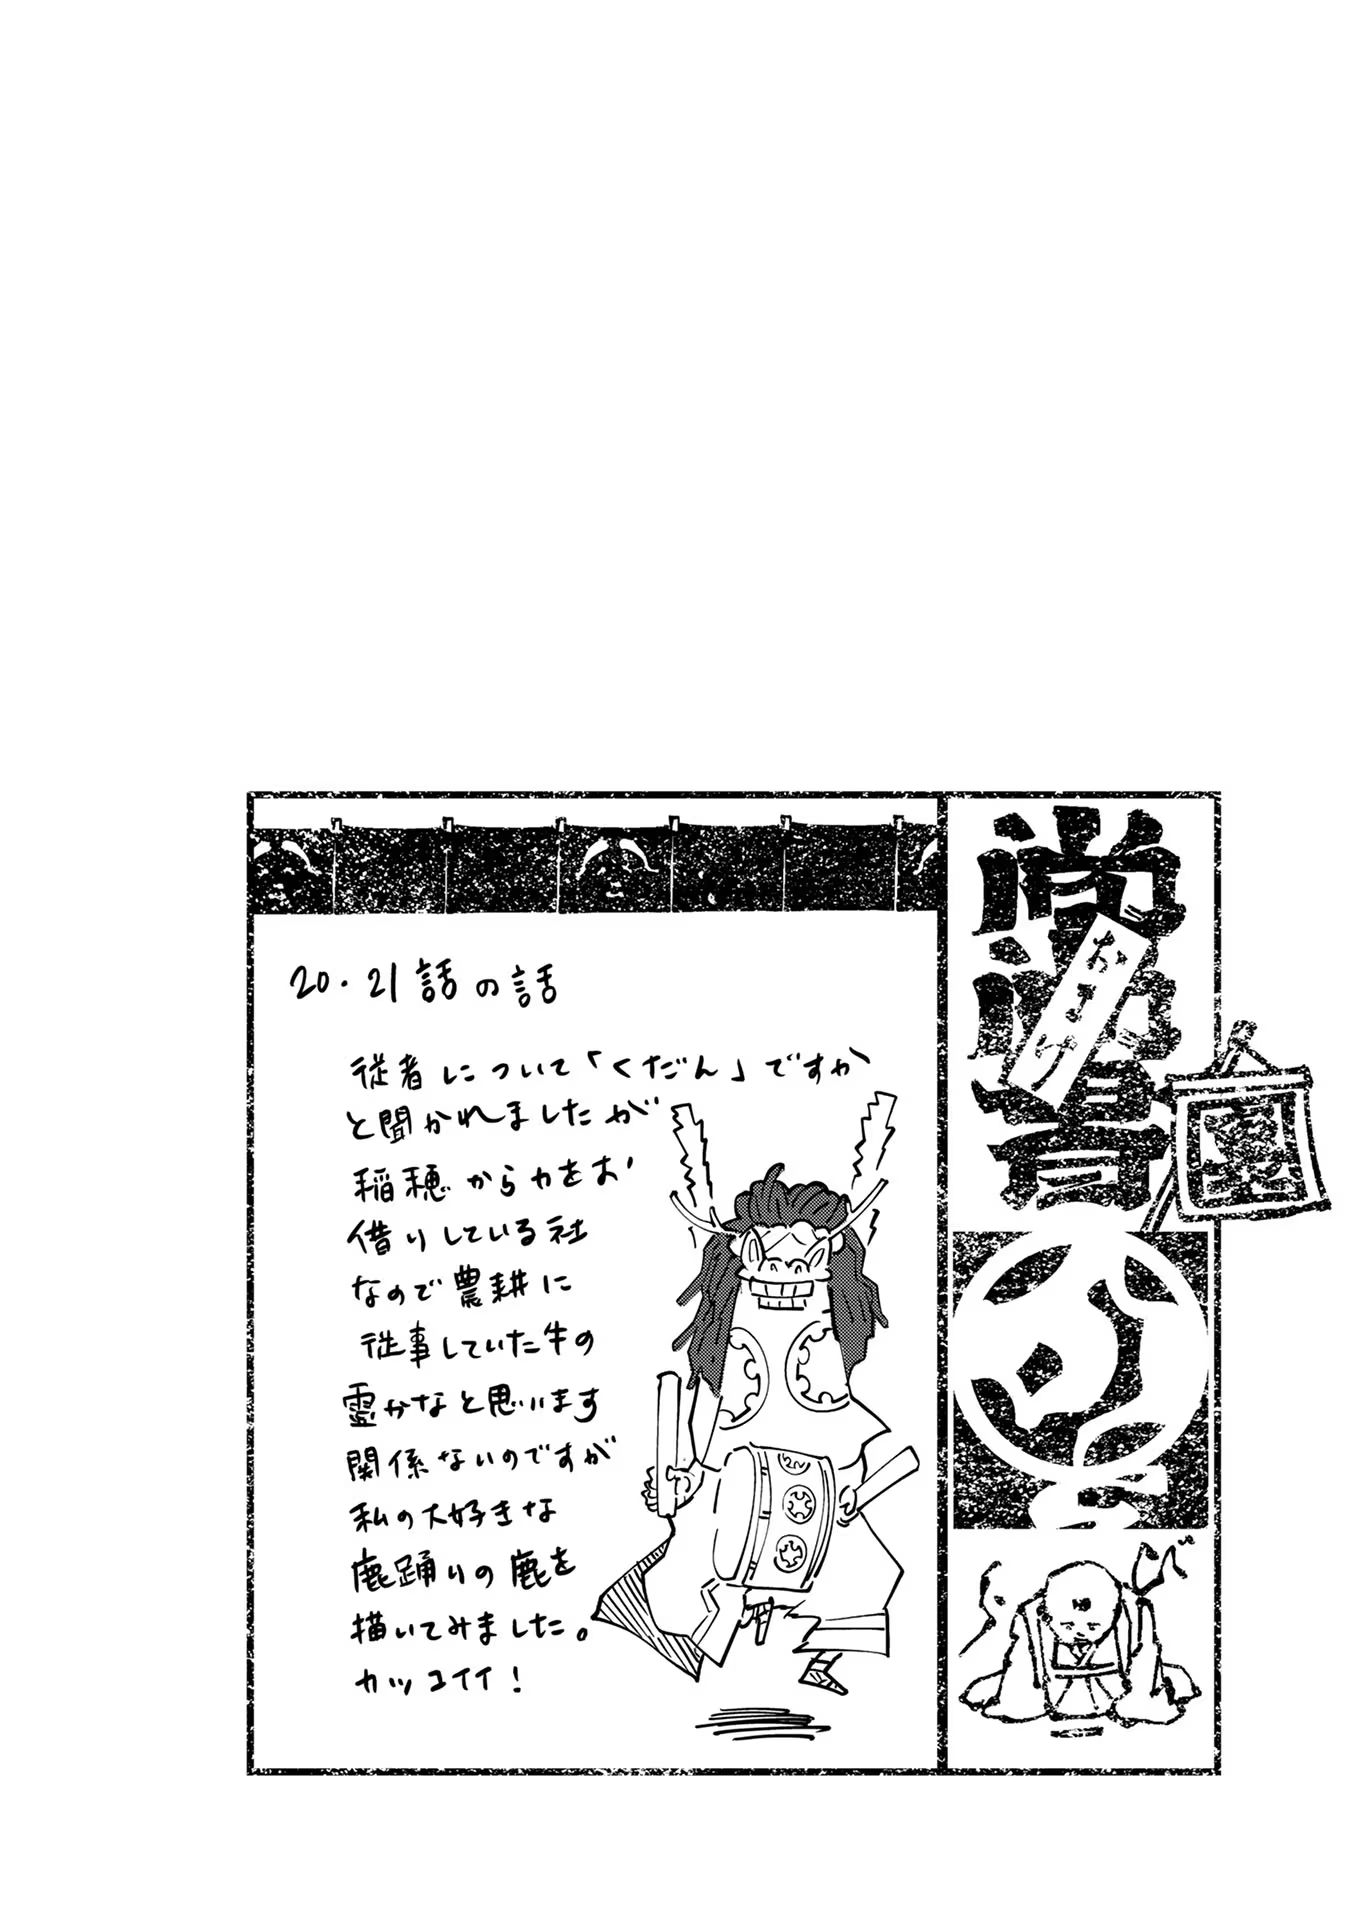 20・21話の話
従者について「くだん」ですか
と聞かれましたが
稲穂から力をお
借りしている社
なので農耕に
従事していた牛の
霊かなと思います
関係ないのですが
私の大好きな
鹿踊りの鹿を
描いてみました。
カッコイイ!
おまけ